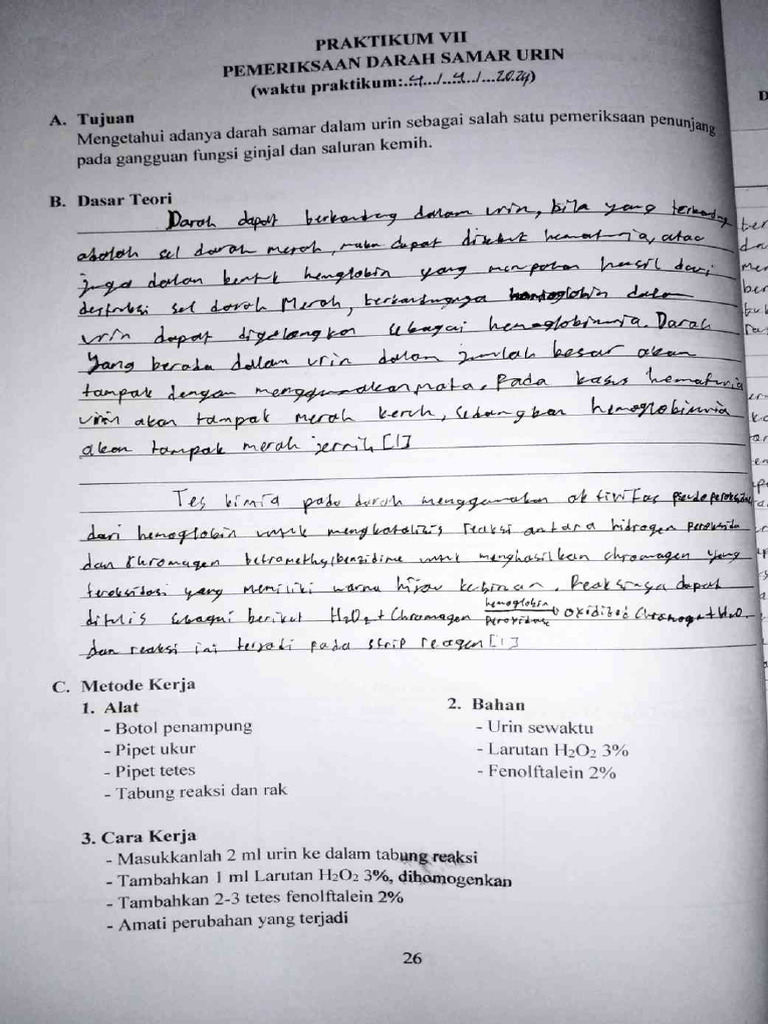 PRAKTIKUM VII
PEMERIKSAAN DARAH SAMAR URIN
(waktu praktikum:..4.../..4../...2024)
A. Tujuan
Mengetahui adanya darah samar dalam urin sebagai salah satu pemeriksaan penunjang
pada gangguan fungsi ginjal dan saluran kemih.
B. Dasar Teori
Darah dapat berkandung dalam urin, bila yang terkandung
adalah sel darah merah, maka dapat disebut hematuria, atau
juga dalam bentuk hemglobin yang merupakan hasil dari
destruksi sel darah Merah, terkandungnya hemoglobin dalam
urin dapat digolongkan sebagai hemoglobinuria. Darah
yang berada dalam urin dalam jumlah besar akan
tampak dengan menggunakan mata. Pada kasus hematuria
urin akan tampak merah keruh, sedangkan hemoglobinuria
akan tampak merah jernih [1]
Tes kimia pada darah menggunakan aktivitas pseudoperoksidase
dari hemoglobin untuk mengkatalisis reaksi antara hidrogen peroksida
dan chromagen tetramethylbenzidine untuk menghasilkan chromagen yang
teroksidasi yang memiliki warna hijau kebiruan. Reaksinya dapat
ditulis sebagai berikut H2O2 + Chromagen hemoglobin peroxidase oxidized Chromagen + H2O
dan reaksi ini terjadi pada strip reagen [1]
C. Metode Kerja
1. Alat
- Botol penampung
- Pipet ukur
- Pipet tetes
- Tabung reaksi dan rak
2. Bahan
- Urin sewaktu
- Larutan H2O2 3%
- Fenolftalein 2%
3. Cara Kerja
- Masukkanlah 2 ml urin ke dalam tabung reaksi
- Tambahkan 1 ml Larutan H2O2 3%, dihomogenkan
- Tambahkan 2-3 tetes fenolftalein 2%
- Amati perubahan yang terjadi
26